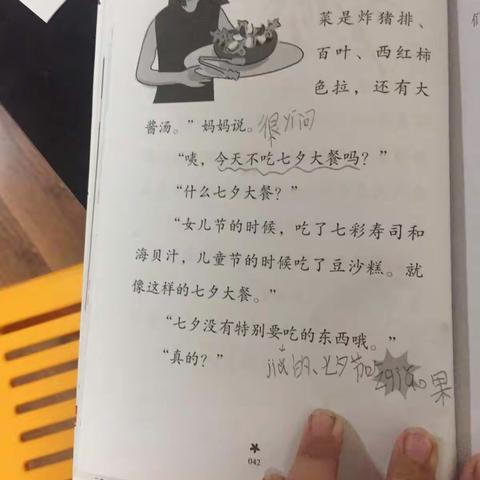 菜是炸猪排、
百叶、西红柿
色拉，还有大
酱汤。”妈妈说。很
“咦，今天不吃七夕大餐吗？”
“什么七夕大餐？”
“女儿节的时候，吃了七彩寿司和
海贝汁，儿童节的时候吃了豆沙糕。就
像这样的七夕大餐。”
“七夕没有特别要吃的东西哦。”
“真的？”
的、七夕节
果
042
们